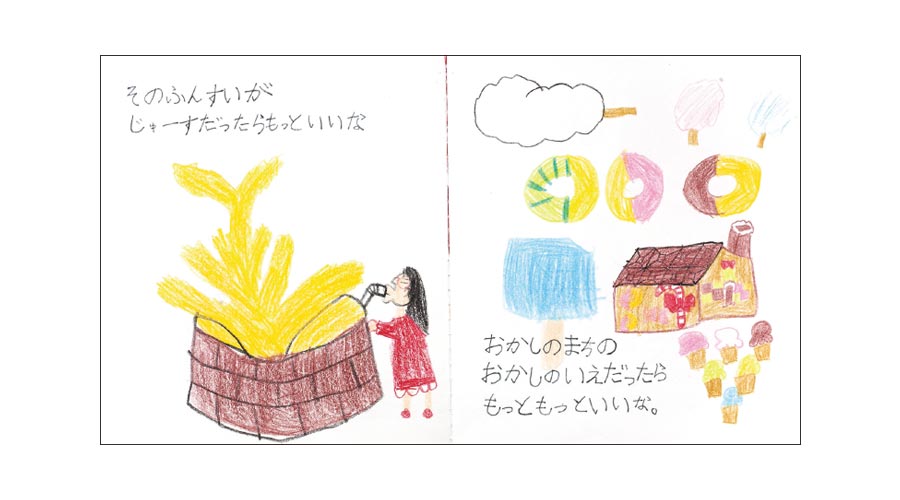 そのふんすいが
じゅーすだったらもっといいな
おかしのまちの
おかしのいえだったら
もっともっといいな。